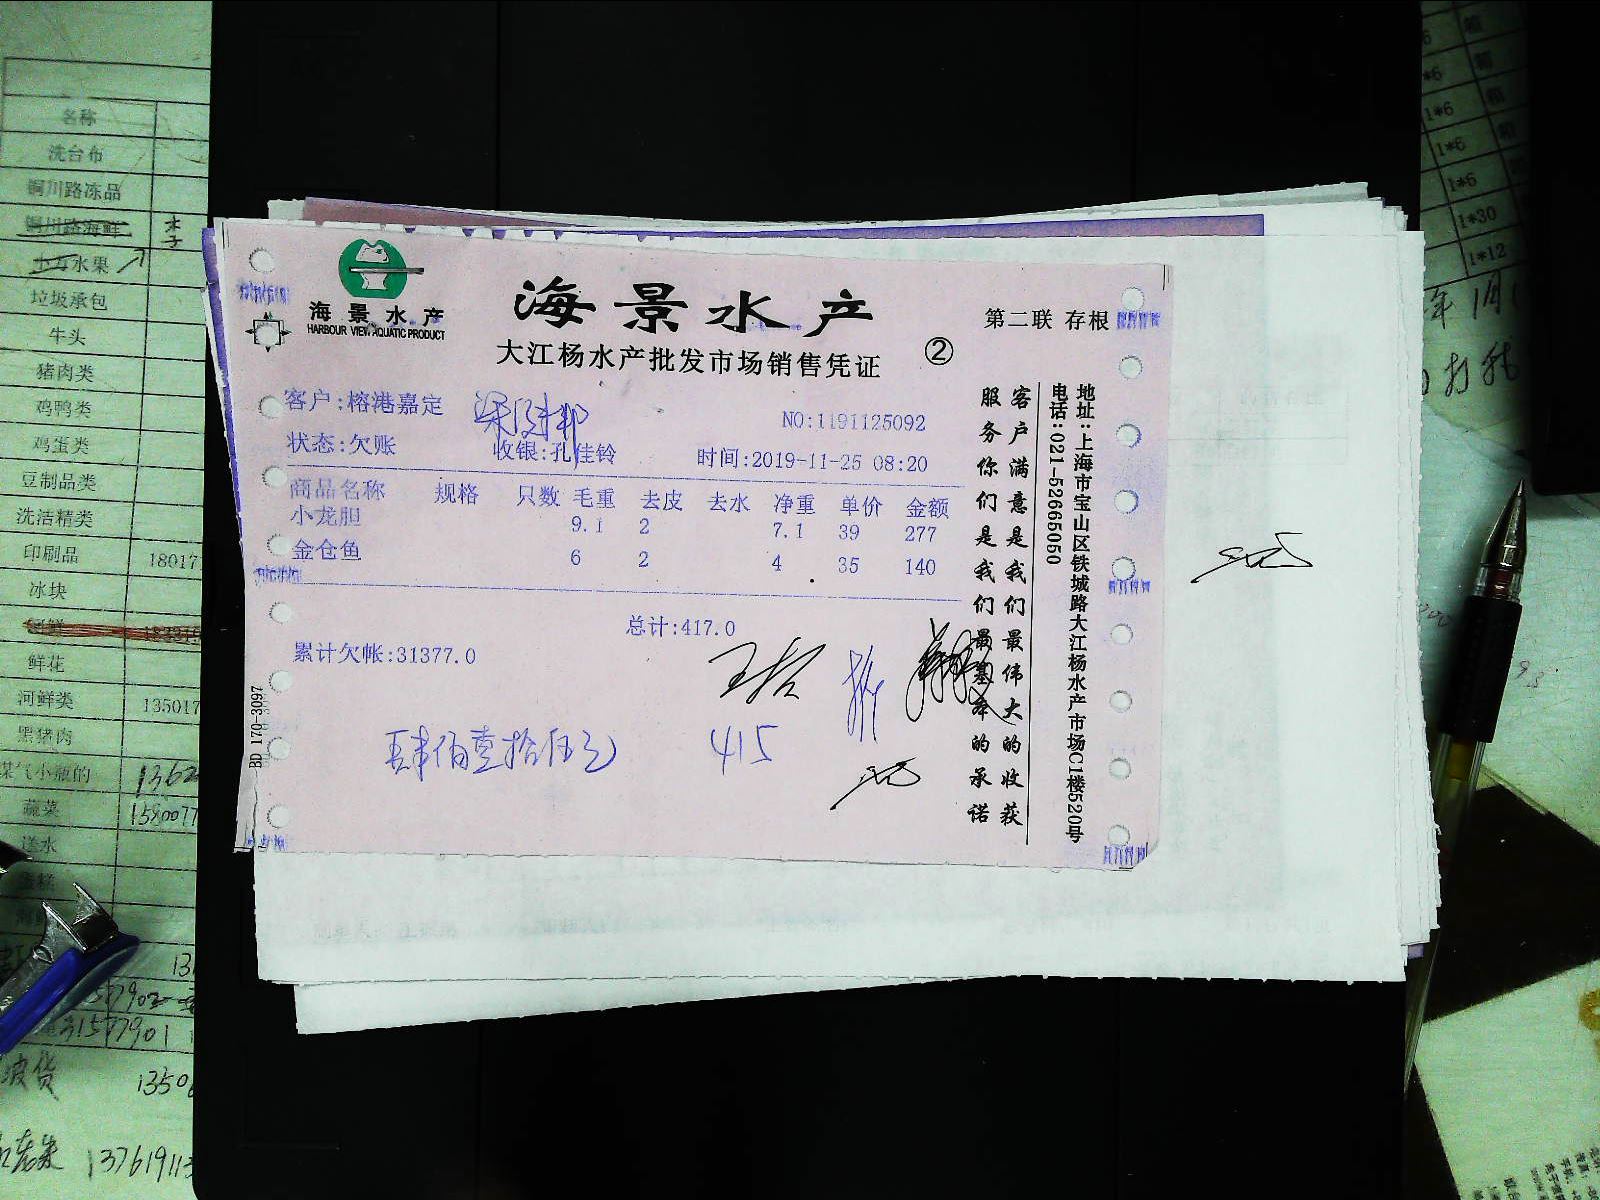 海景水产
HARBOUR VIEW AQUATIC PRODUCT
海景水产
大江杨水产批发市场销售凭证
②
第二联 存根
客户:榕港嘉定
NO:1191125092
状态:欠账
收银:孔佳铃
时间:2019-11-25 08:20
商品名称 规格 只数 毛重 去皮 去水 净重 单价 金额
小龙胆 9.1 2 7.1 39 277
金仓鱼 6 2 4 35 140
总计:417.0
累计欠帐:31377.0
肆佰壹拾伍元 415
BD 170-3097
客户满意是我们最伟大的收获
服务你们是我们最基本的承诺
地址:上海市宝山区铁城路大江杨水产市场C1楼520号
电话:021-52665050
名称
洗台布
铜川路冻品
铜川路海鲜
水果
垃圾承包
牛头
猪肉类
鸡鸭类
鸡蛋类
豆制品类
洗洁精类
印刷品 18017
冰块
鲜花
河鲜类 135017
黑猪肉
煤气小瓶的 1362
蔬菜 1580077
送水
31577901
1350
1376191135
1*6
1*6
1*6
1*30
1*12